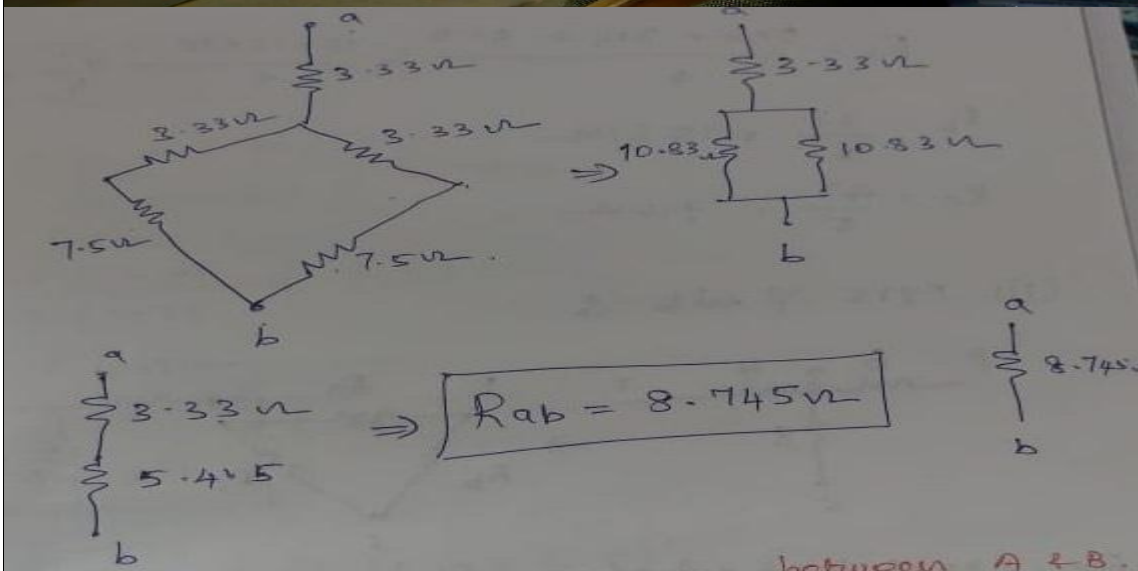 a
3.33Ω
3.33Ω
3.33Ω
7.5Ω
7.5Ω.
b
⇒
a
3.33Ω
10.83Ω
10.83Ω
b
a
3.33Ω
5.415
b
⇒
Rab = 8.745Ω
a
8.745
b
between A & B.